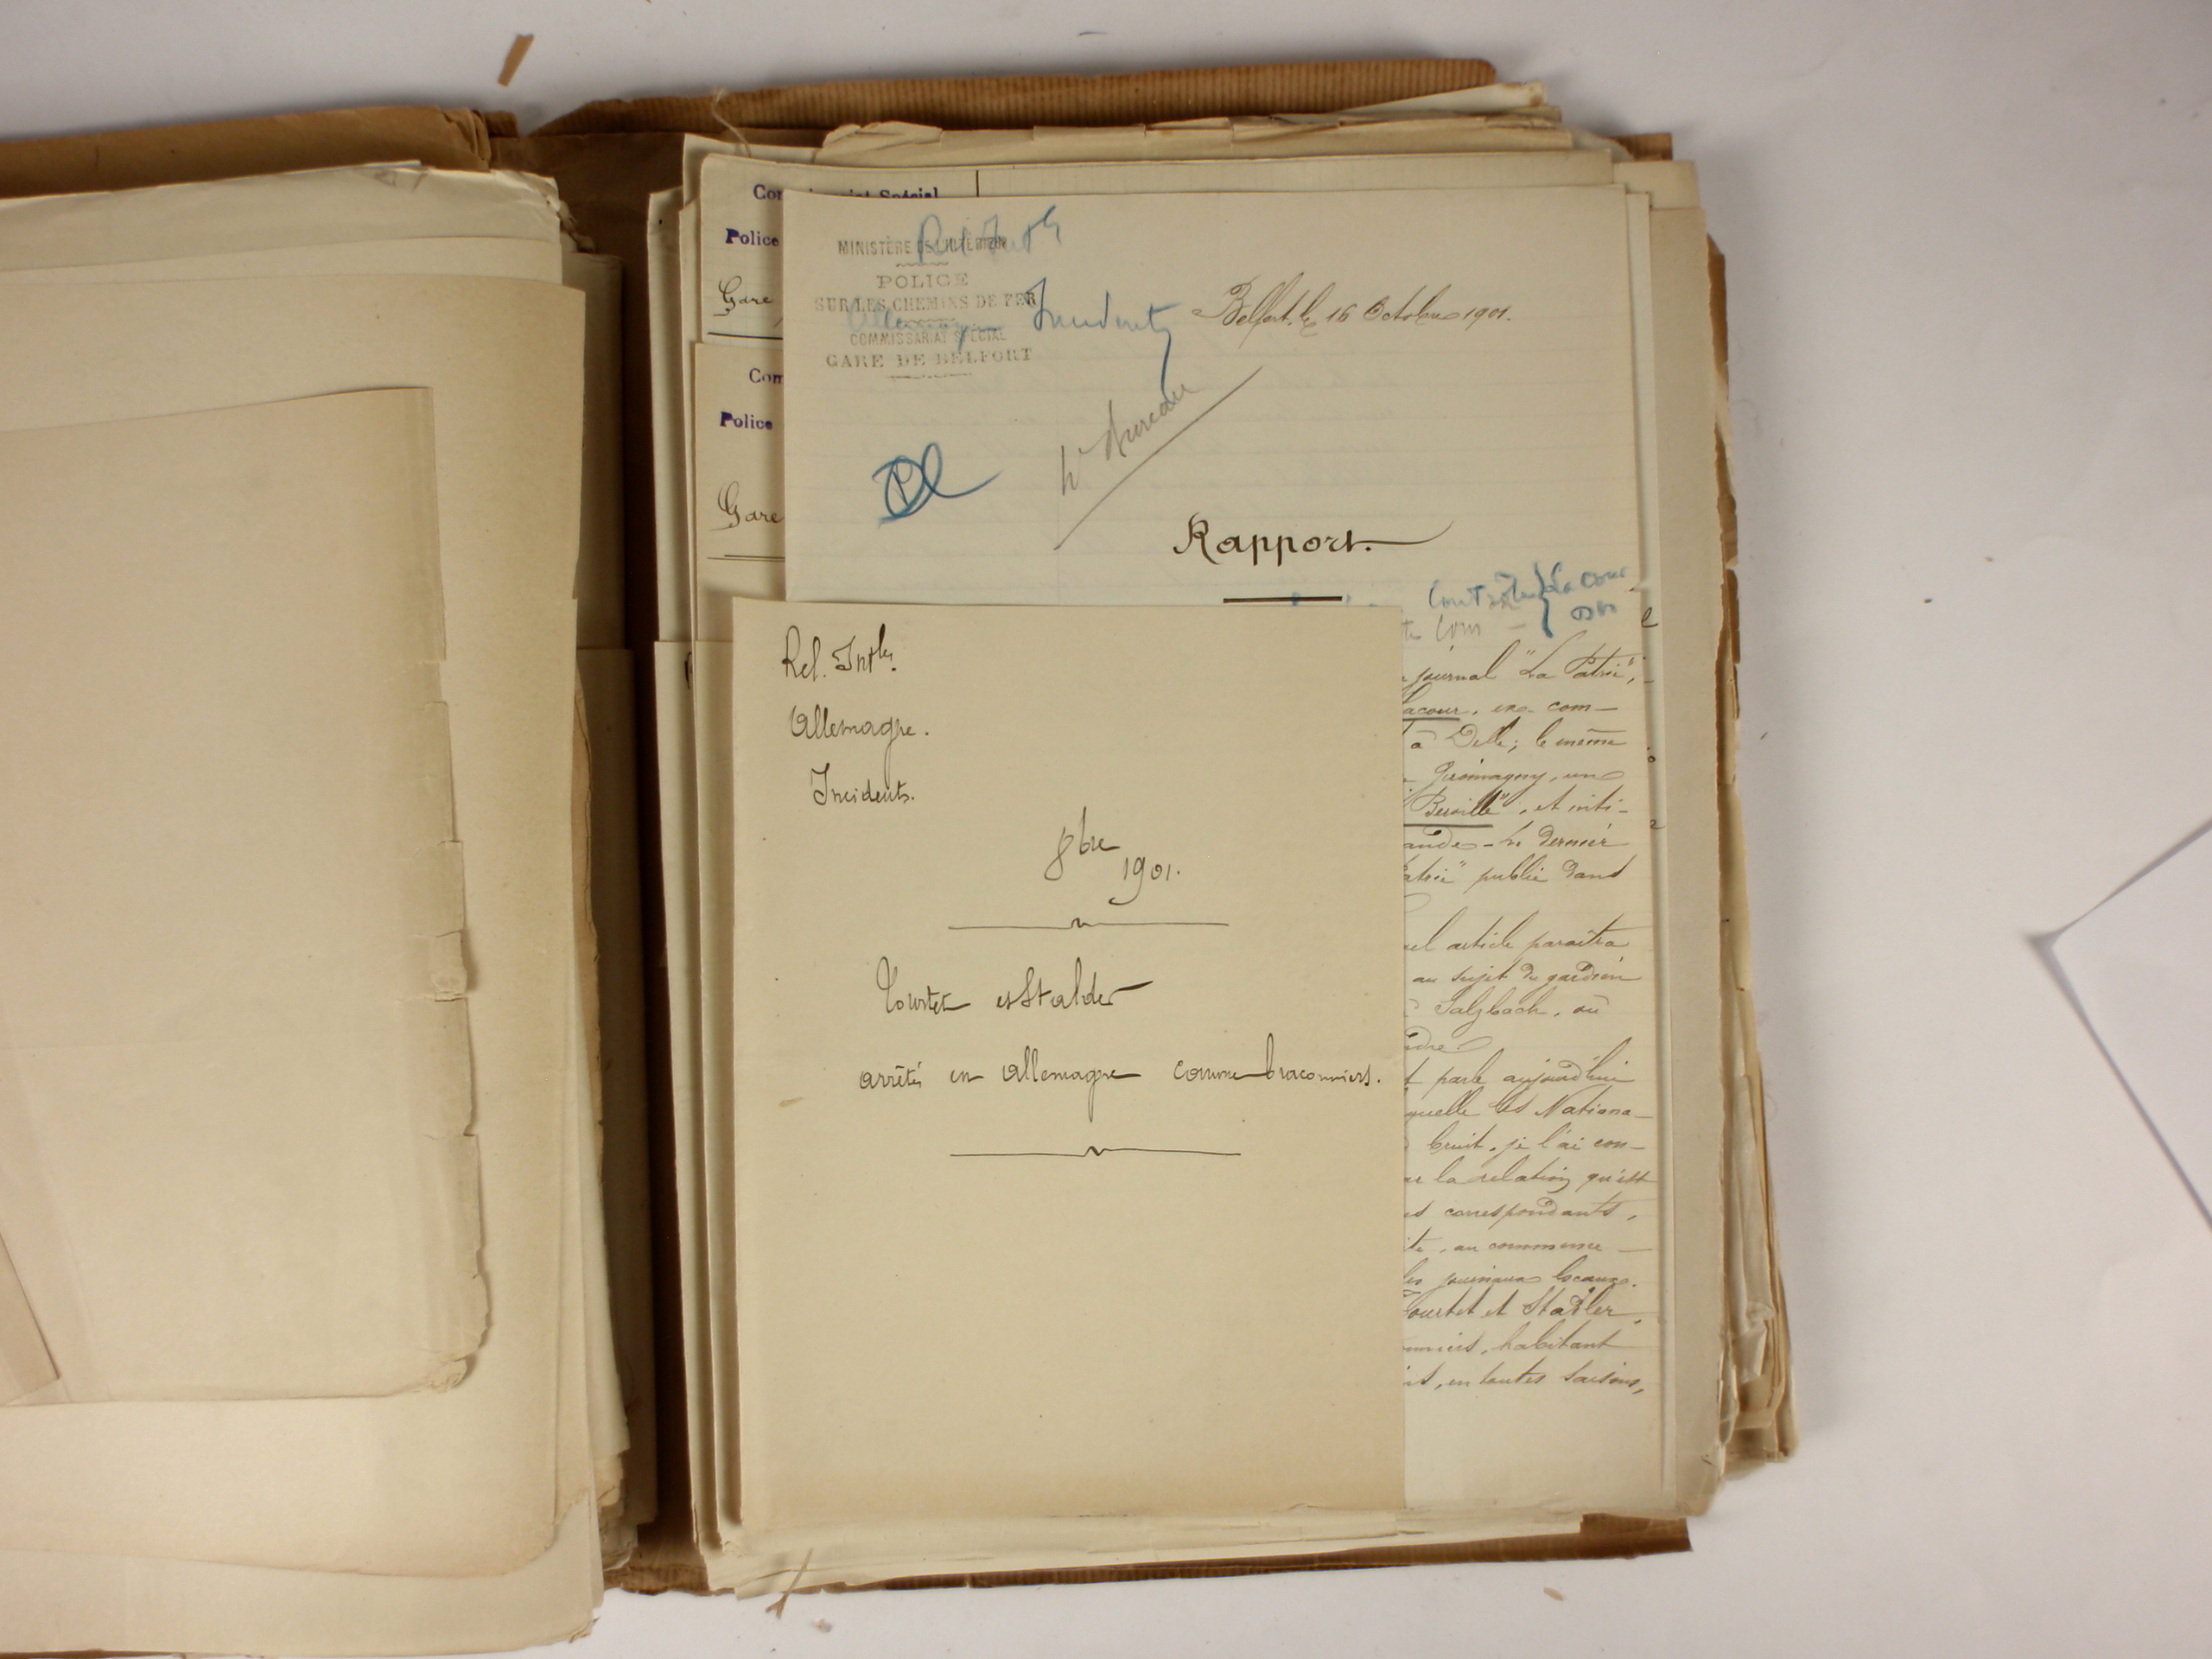 Police
Gare
Com
Police
Gare
MINISTÈRE DE L'INTÉRIEUR
POLICE
SUR LES CHEMINS DE FER
COMMISSARIAT SPÉCIAL
GARE DE BELFORT
Allemagne Incidents
Belfort, le 16 Octobre 1901.
Bureau
Rapport.
journal "La Patrie",
Lacour, ex- com-
à Delle; le même
Giromagny, un
, et inti-
ande - Le dernier
publié dans
article paraîtra
au sujet du gardien
Salzbach, où
parle aujourd'hui
quelle les Nationa-
bruit, je l'ai con-
la relation qu'en
correspondants,
, au commence-
les journaux locaux.
Courtet et Stadler,
, habitant
, en toutes saisons,
Rel. Intles.
Allemagne.
Incidents.
8bre
1901.
Courtet et Stalder
arrêtés en Allemagne comme braconniers.